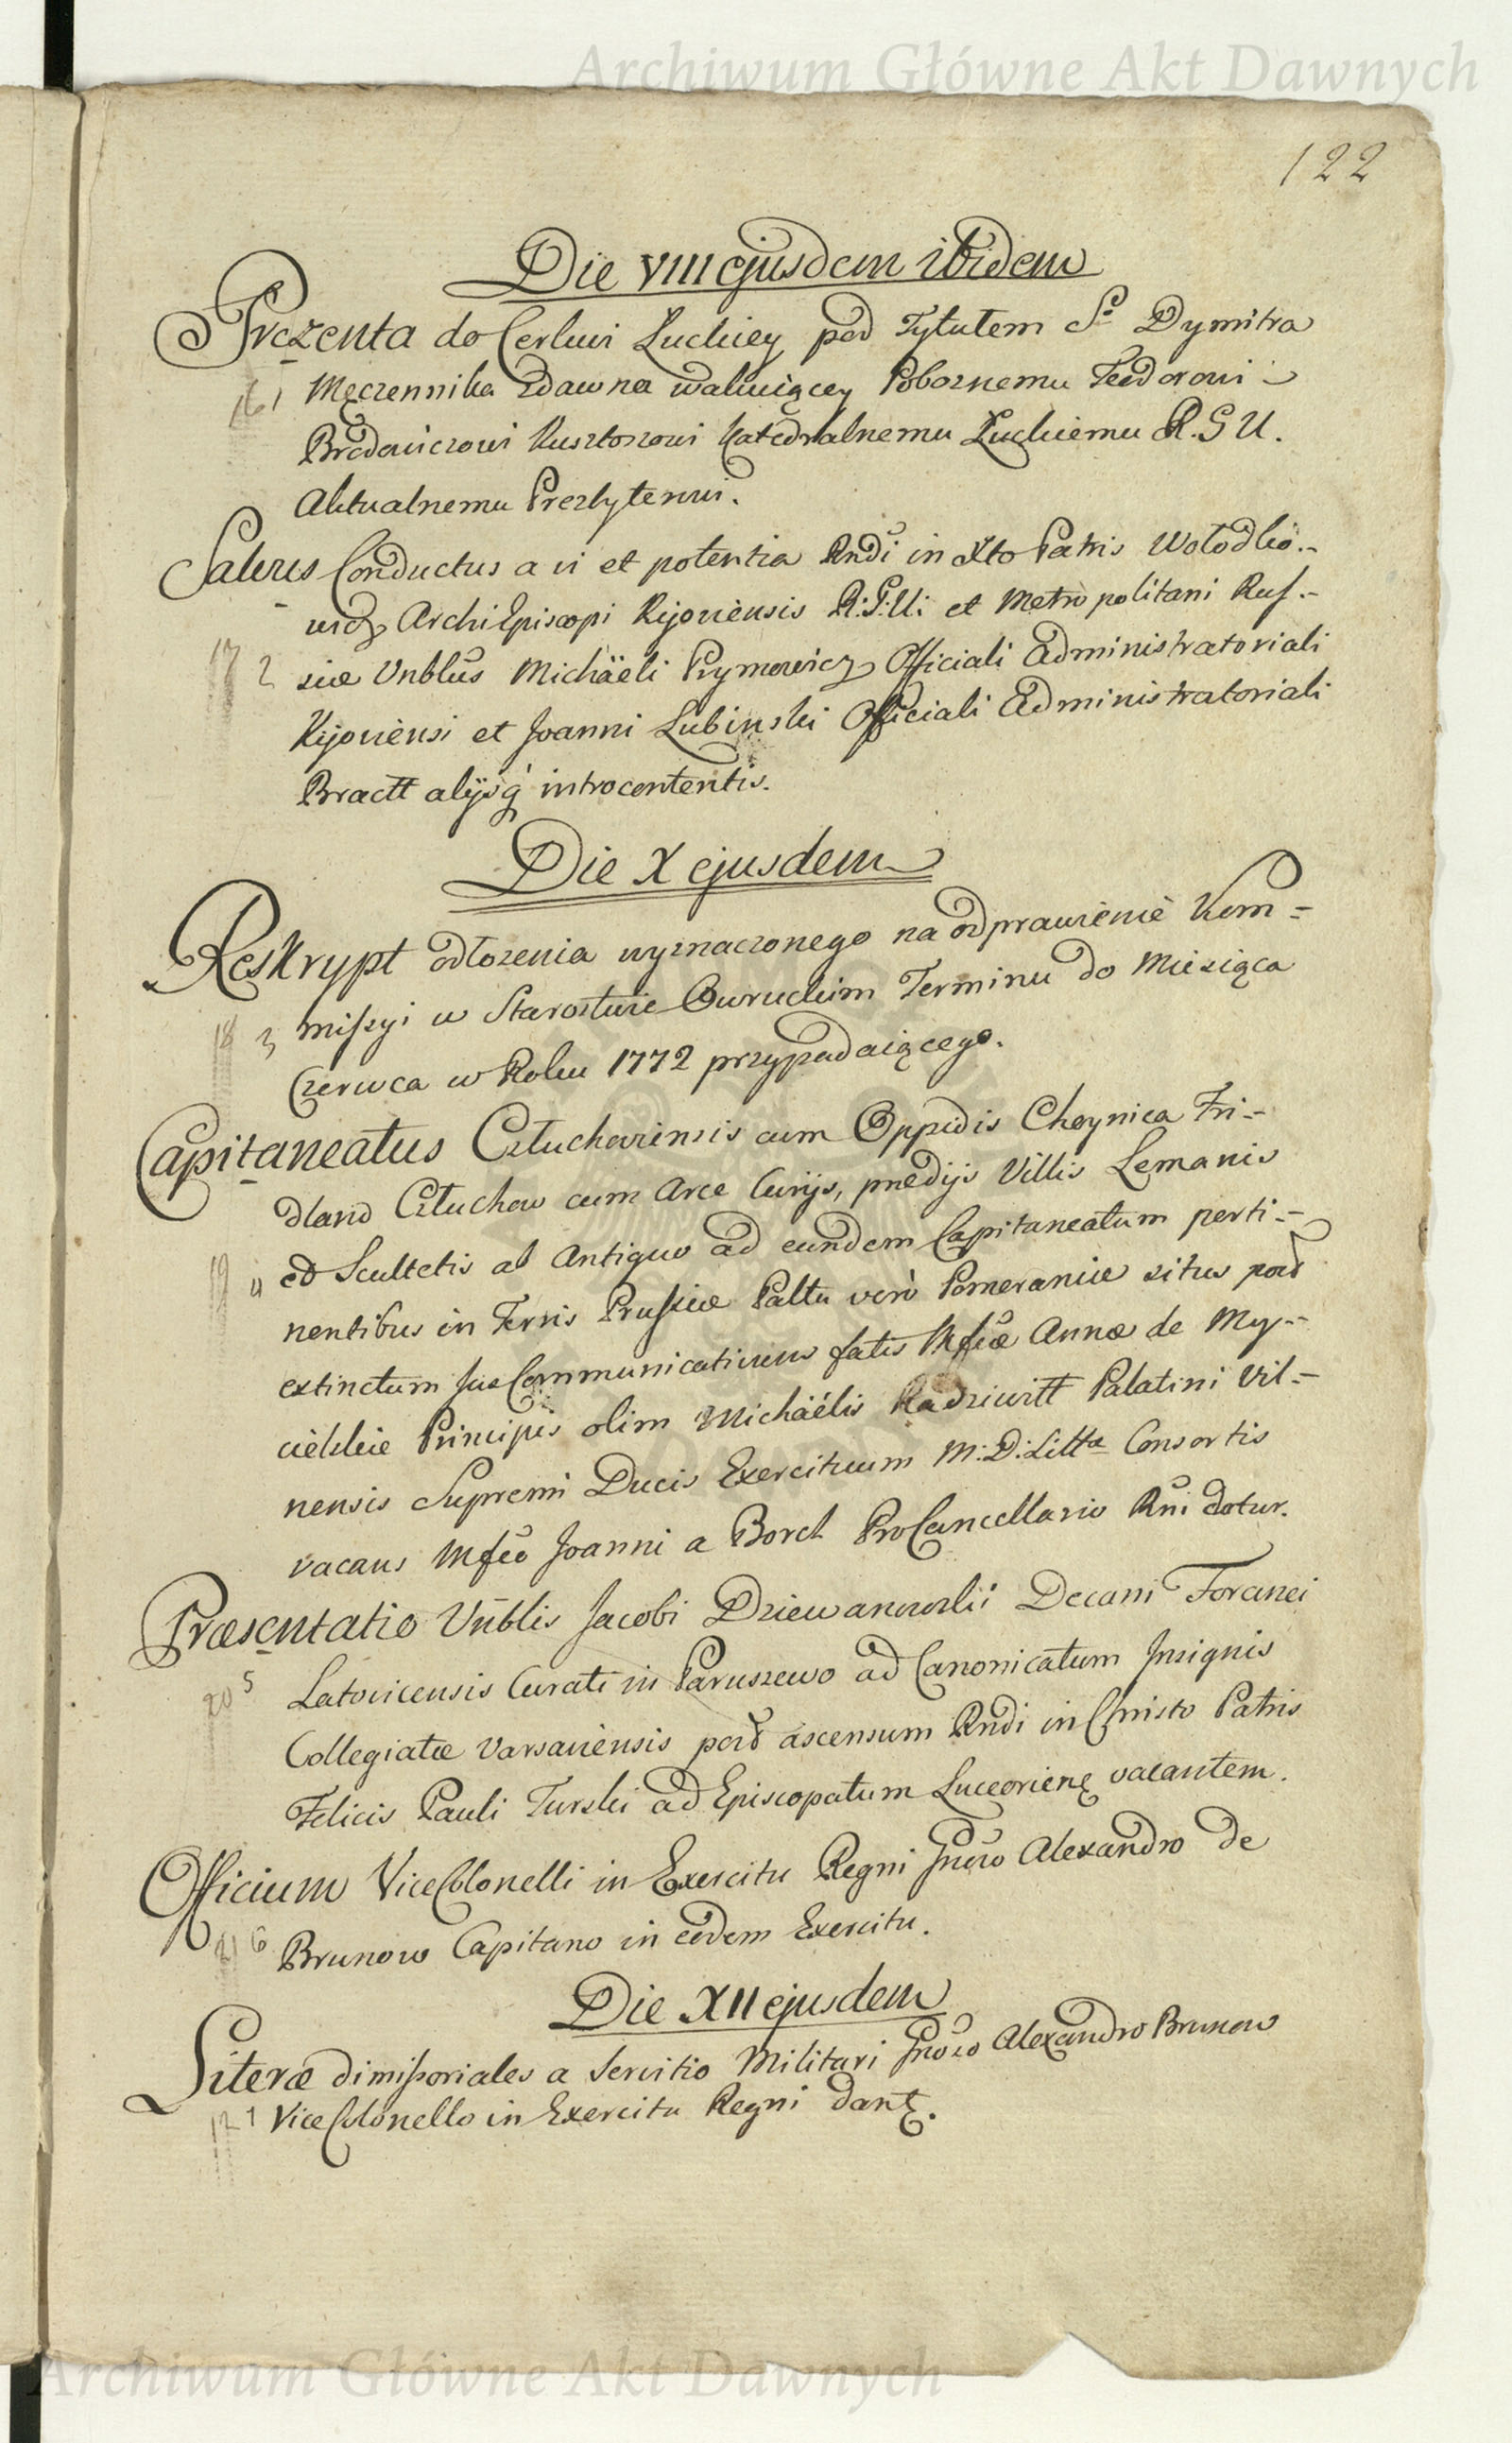 Archiwum Główne Akt Dawnych
122
Die VIII ejusdem ibidem
Prezenta do Cerkwi Łuckiey pod Tytułem Sº Dymitra
16 1 Męczennika Zdawna wakuiącey Pobożnemu Teodorowi
Bredowiczowi Kusztoszowi Katedralnemu Łuckiemu R. G U.
Aktualnemu Prezbyterowi.
Salvus Conductus a vi et potentia Rndi in Xto Patris Wołodko-
wicz ArchiEpiscopi Kijoviensis R: G: Uti et Metropolitani Rus-
17 2 siæ Vnblus Michäeli Prymowicz Officiali Administratoriali
Kijoviensi et Joanni Lubinski Officiali Administratoriali
Bractt alijsq́ introcontentis.
Die X ejusdem
Reskrypt odłożenia wyznaczonego na odprawienie Kom-
18 3 missyi w Starostwie Owruckim Terminu do Miesiąca
Czerwca w Roku 1772 przypadaiącego.
Capitaneatus Człuchoviensis cum Oppidis Choynica Fri-
dland Człuchow cum Arce Curijs, prædijs Villis Lemanis
19 4 et Scultetis ab Antiquo ad eundem Capitaneatum perti-
nentibus in Terris Prussiæ Pałtu verò Pomeraniæ situs post
extinctum Jus Communicativum fatis Mfcæ Annæ de My-
cielskie Principis olim Michäelis Radziwiłł Palatini Vil-
nensis Supremi Ducis Exercituum M: D: Littª Consortis
vacans Mfco Joanni a Borch ProCancellario Rni datur.
Præsentatio Vnblis Jacobi Dziewanowski Decani Foranei
20 5 Latovicensis Curati in Paruszewo ad Canonicatum Insignis
Collegiatæ Varsaviensis post ascensum Rndi in Christo Patris
Felicis Pauli Turski ad Episcopatum Luceorien. vacantem.
Officium ViceColonelli in Exercitu Regni Gnoso Alexandro de
21 6 Brunow Capitano in eodem Exercitu.
Die XII ejusdem
Literæ dimissoriales a Servitio Militari Gnoso Alexandro Brunow
1 ViceColonello in Exercitu Regni dant.
Archiwum Główne Akt Dawnych